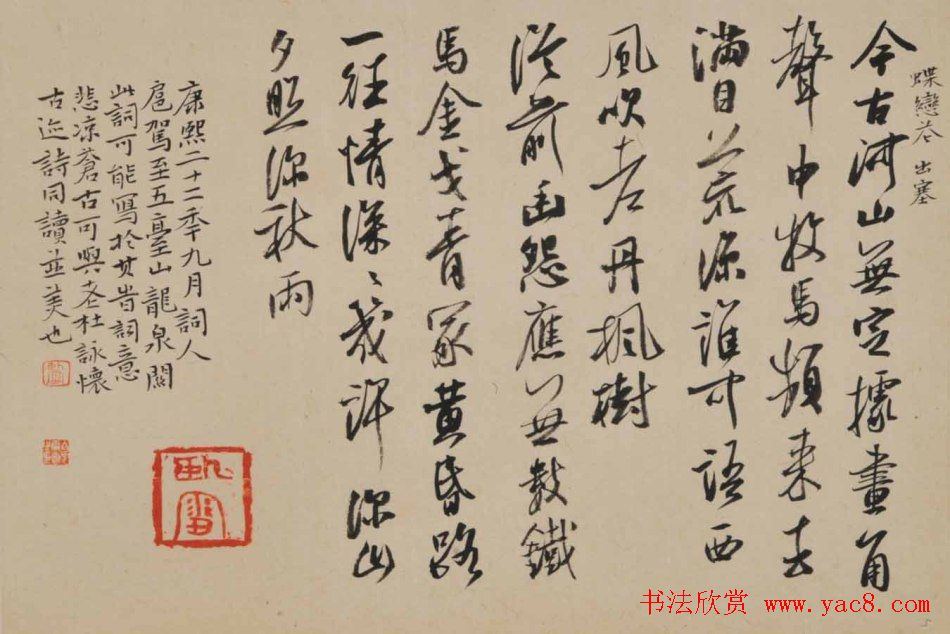 蝶戀花 出塞
今古河山無定據畫角
聲中牧馬頻來去
滿目荒涼誰可語西
風吹老丹楓樹
從前幽怨應無數鐵
馬金戈青冢黃昏路
一往情深〻幾許 深山
夕照深秋雨
康熙二十二年九月詞人
扈駕至五臺山龍泉關
此詞可能寫於其旹詞意
悲凉蒼古可與老杜詠懷
古迹詩同讀並美也
书法欣赏 www.yac8.com